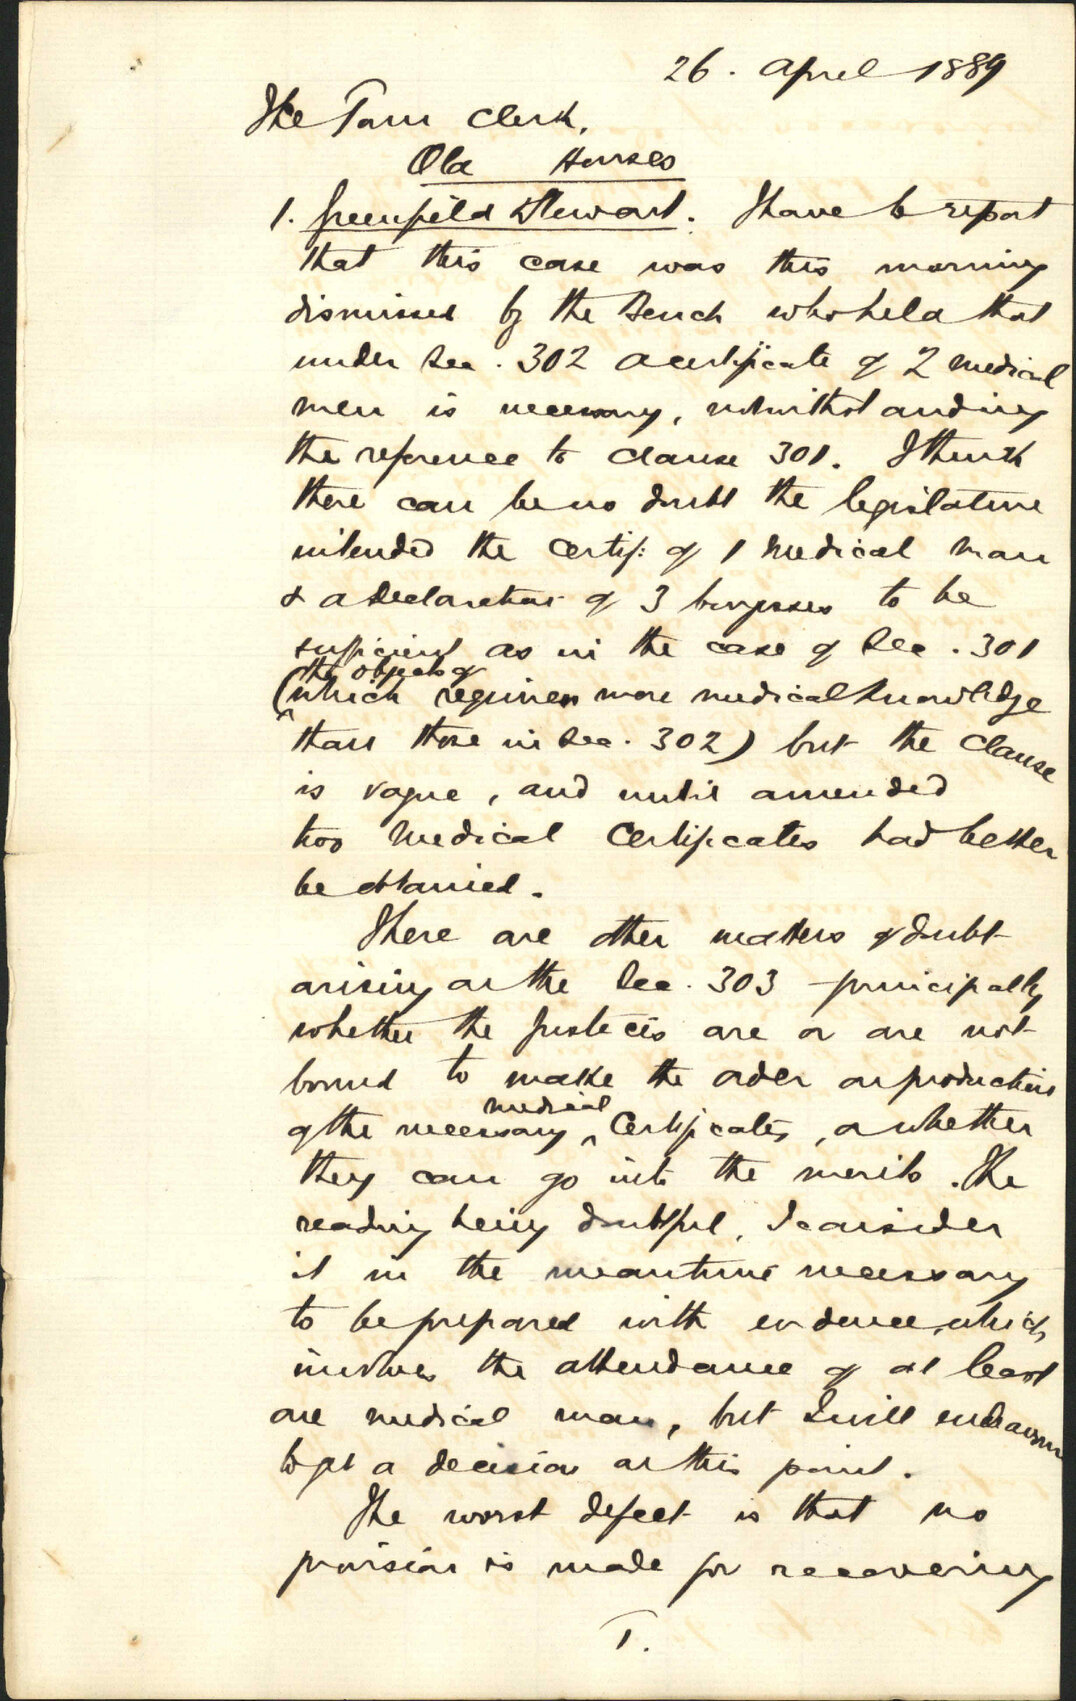 26. April 1889
The Town Clerk,
Old Houses
1. Greenfield & Stewart. I have to report
that this case was this morning
dismissed by the Bench who held that
under Sec. 302 a certificate of 2 medical
men is necessary, notwithstanding
the reference to clause 301. I think
there can be no doubt the legislature
intended the certif: of 1 medical man
& a declaration of 3 burgesses to be
sufficient as in the case of Sec. 301
the objects of
(which requires more medical knowledge
than those in Sec. 302) but the clause
is vague, and until amended
two medical certificates had better
be obtained.
There are other matters of doubt
arising on the Sec. 303 principally
whether the Justices are or are not
bound to make the order on production
medical
of the necessary certificates, or whether
they can go into the merits. The
reading being doubtful, I consider
it in the meantime necessary
to be prepared with evidence, which
involves the attendance of at least
one medical man, but I will endeavour
to get a decision on this point.
The worst defect is that no
provision is made for recovering
1.